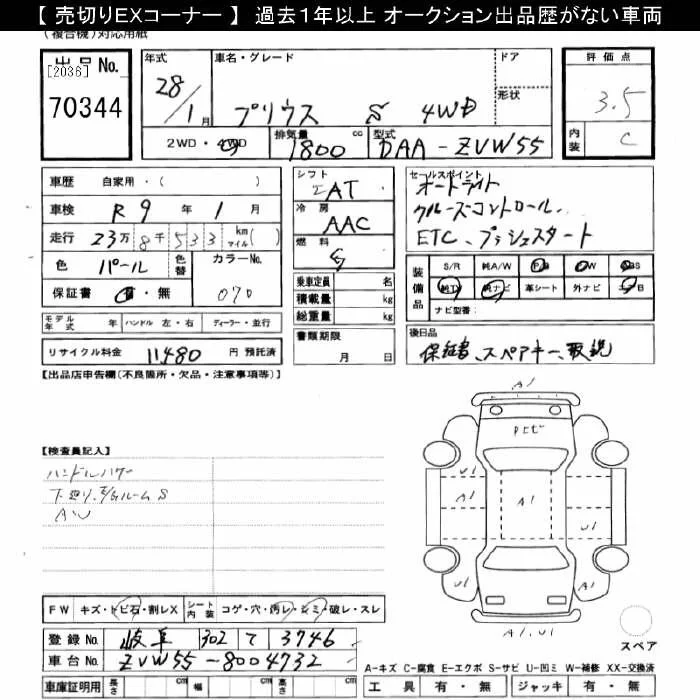 【 売切りEXコーナー 】 過去1年以上 オークション出品歴がない車両
(複合機)対応用紙
出品No.
[2036]
70344
年式 28/1月
車名・グレード プリウス S 4WD
ドア
形状
2WD・4WD
排気量 1800 cc
型式 DAA-ZVW55
評価点 3.5
内装 C
車歴 自家用・( )
車検 R9年1月
走行 23万8千533 km マイル( )
色 パール 色替 カラーNo. 070
保証書 有・無
モデル年式 年 ハンドル 左・右 ディーラー・並行
リサイクル料金 11480 円 預託済
シフト IAT
冷房 AAC
燃料 G
乗車定員 名
積載量 kg
総重量 kg
書類期限 月 日
セールスポイント
オートライト
クルーズコントロール、
ETC、プッシュスタート
装備品 S/R 純A/W P/S P/W ABS
純TV 純ナビ 革シート 外ナビ エアB
ナビ型番:
後日品
保証書、スペアキー、取説
【出品店申告欄(不良箇所・欠品・注意事項等)】
【検査員記入】
ハンドルハゲー
下廻り、E/GルームS
AW
A1
Pトビ
U1
A1
A1
U1
U1
A1
A1, U1
スペア
FW キズ・トビ石・割レX シート内装 コゲ・穴・汚レ・シミ・破レ・スレ
登録No. 岐阜 302 て 3746
車台No. ZVW55-8004732
車庫証明用 長さ cm 幅 cm 高さ cm
A-キズ C-腐食 E-エクボ S-サビ U-凹ミ W-補修 XX-交換済
工具 有・無 ジャッキ 有・無